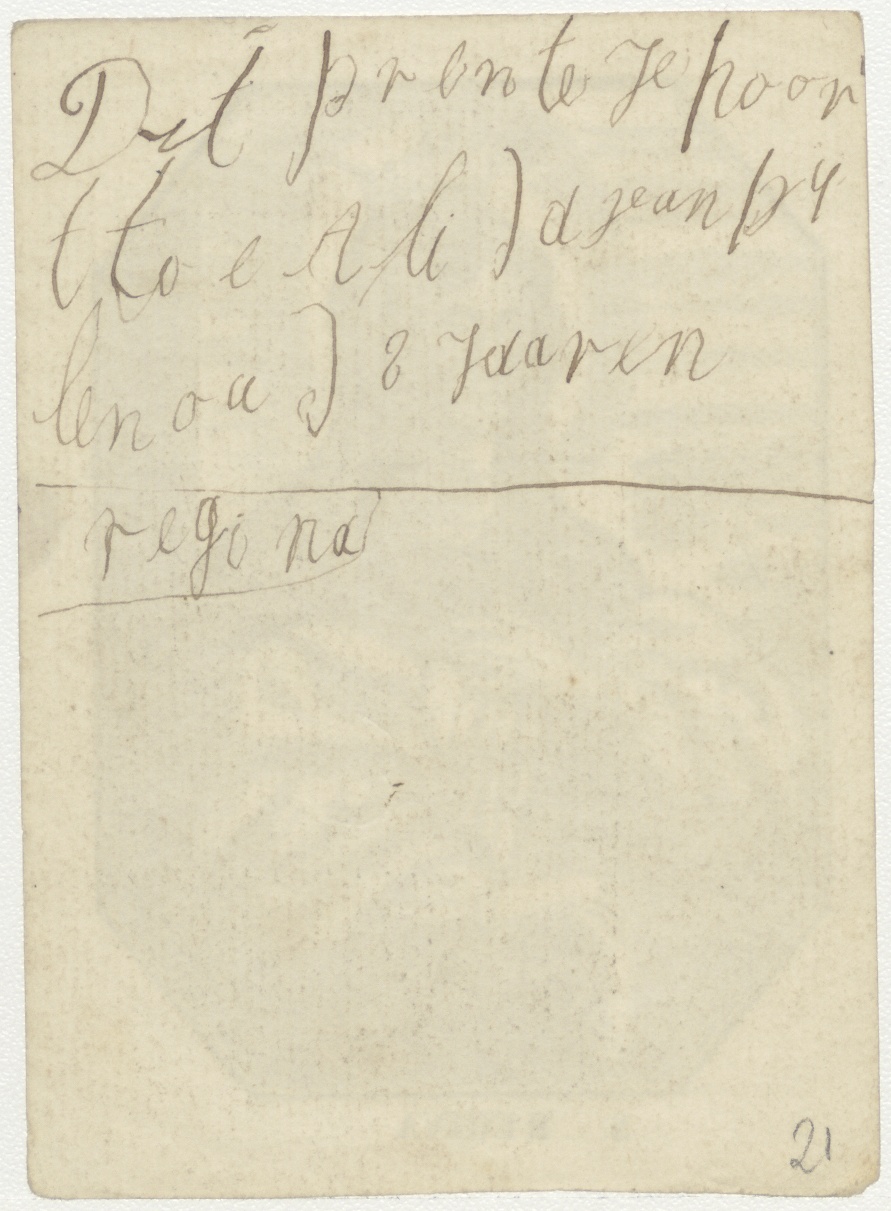 Dit prente Je hoor
t toe A li ) d jean py
len oud 8 Jaaren
regina
21